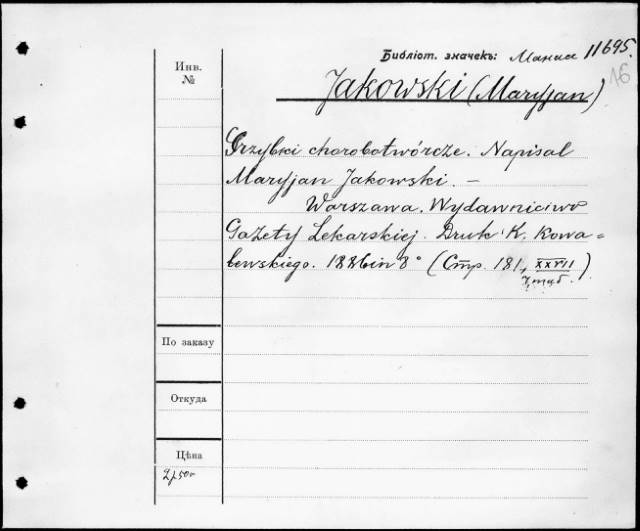 Библіот. значекъ: Манас 11695.
16
Инв.
№
Jakowski (Maryjan)
Grzybki chorobotwórcze. Napisal
Maryjan Jakowski. —
Warszawa. Wydawnictwo
Gazety Lekarskiej. Druk K. Kowa-
lewskiego. 1886 in 8° (Стр. 181, XXVII)
7 таб.
По заказу
Откуда
Цѣна